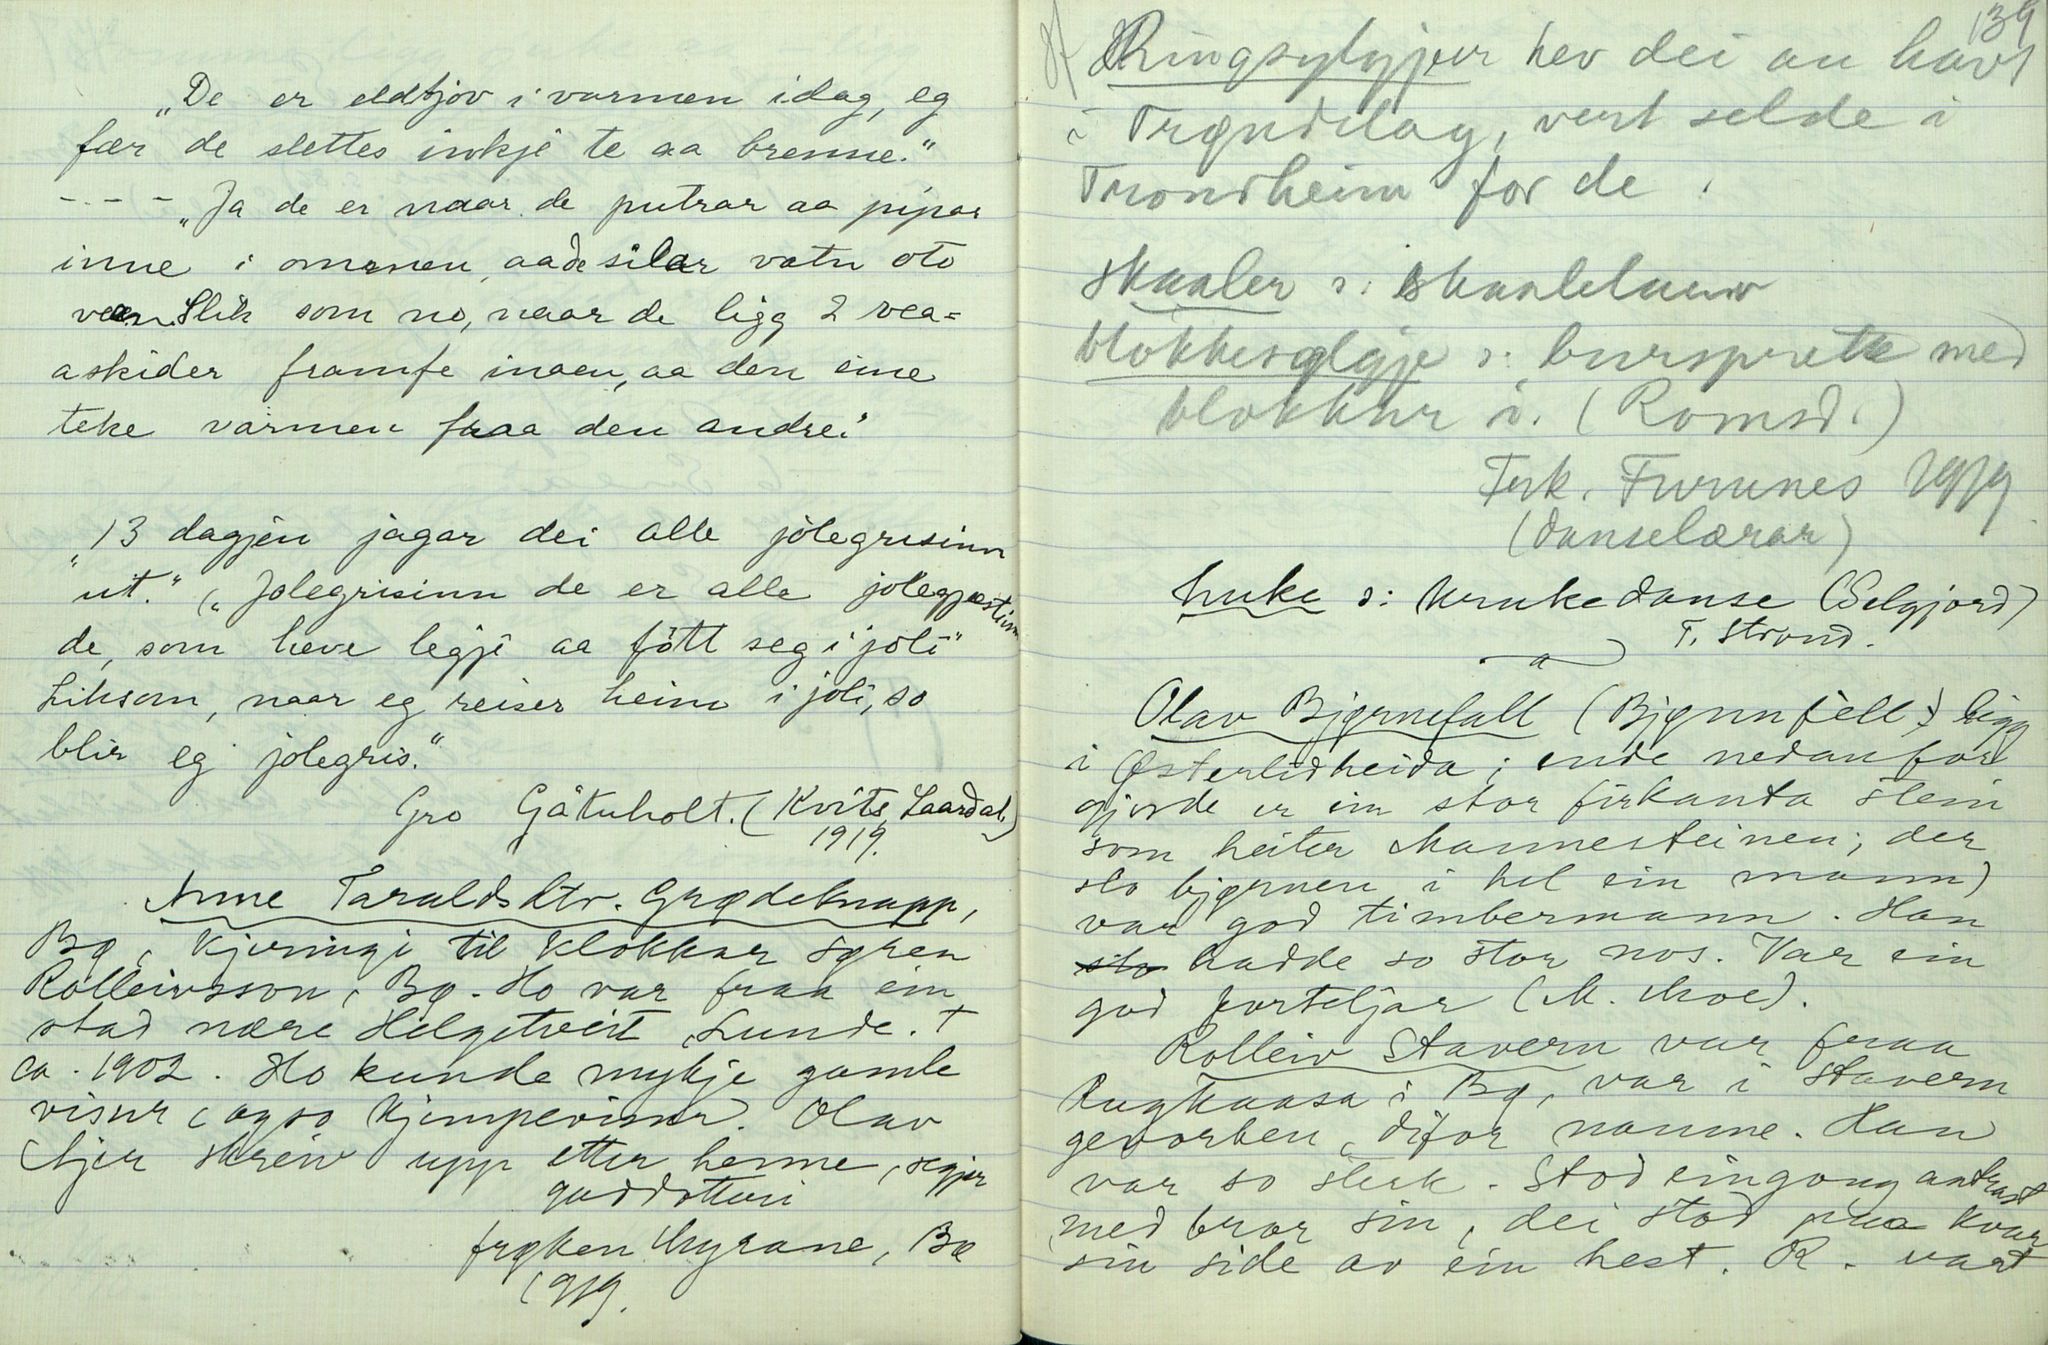 „De er eldtjov i varmen idag, eg
fær de slettes inkje te aa brenne."
- - - - „Ja de er naar de putrar aa pipar
inne i omnen, aa de silar vatn oto
vean. Slik som no, naar de ligg 2 vea-
askider framfe inaen, aa den eine
teke varmen fraa den andre."
„13 dagjen jagar dei alle jolegrisinn
ut." („Jolegrisinn de er alle jolegjestinn
de, som heve legje aa fött seg i joli"
Liksom, naar eg reiser heim i joli, so
blir eg jolegris."
Gro Gåkuholt. (Kvits. Laardal.)
1919.
Anne Taraldsdtr. Grødeknapp,
Bø, kjeringi til klokkar Søren
Rolleivsson, Bø. Ho var fraa ein
stad nære Helgetveit, Lunde. †
ca. 1902. Ho kunde mykje gamle
visur, ogso kjempevisur. Olav
Tjør skreiv upp etter henne, segjer
guddotteri
frøken Myrane, Bø
1919.
139
Ringsylgjer hev dei au havt
i Trøndelag, vert selde i
Trondheim for de.
Skaaler ɔ: skaaleluer
klokkesylgje ɔ: bursprette med
klokkur i. (Romsd.)
Frk. Furunes 1919
(danselærar)
huke ɔ: krukedanse (Selgjord)
T. Strond.
Olav Bjørnefall (Bjønnfell ligg
i Østerlidheida; ende nedanfor
gjerde er ein stor firkanta stein
som heiter Mannesteinen; der
slo bjørnen i hel ein mann)
var god timbermann. Han
slo hadde so stor nos. Var ein
god forteljar (M. Moe).
Rolleiv Stavern var fraa
Rugkaasa i Bø, var i Stavern
gevorben, difor namne. Han
var so sterk. Stod eingong aa trast
med bror sin, dei stod paa kvar
sin side av ein hest. R. vart